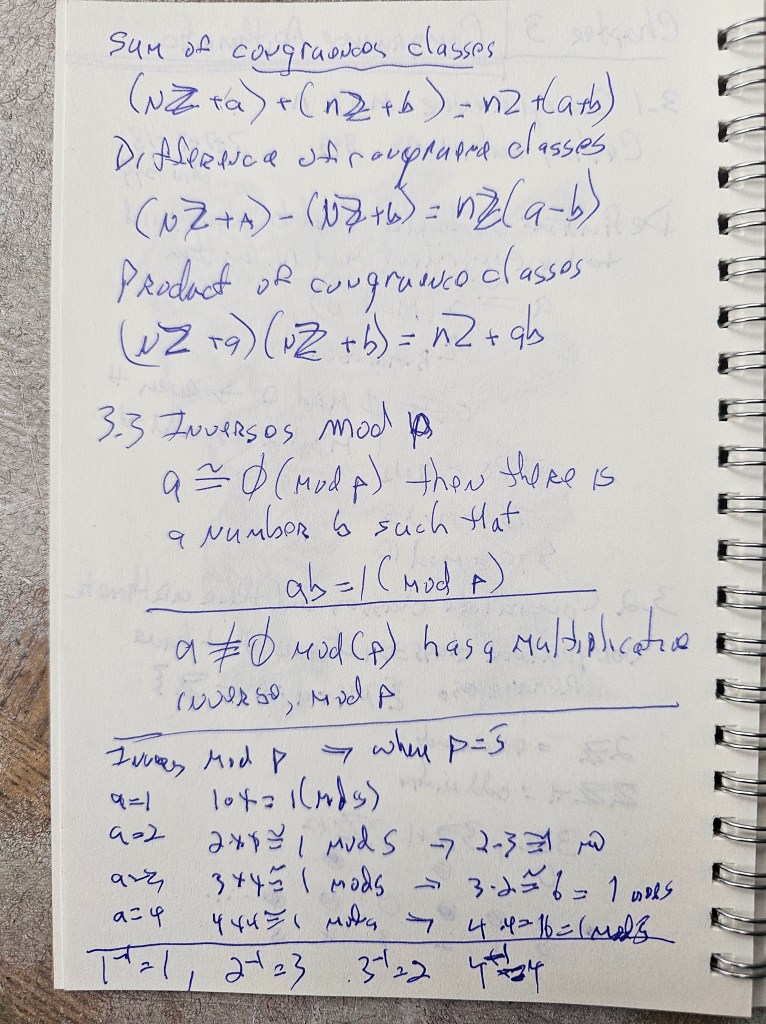 Sum of congruences classes
(nℤ + a) + (nℤ + b) = nZ + (a+b)
Difference of congruence classes
(Nℤ + A) - (Nℤ + b) = nℤ(a-b)
Product of congruence classes
(Nℤ + a)(Nℤ + b) = nZ + ab
3.3 Inverses mod p
a ≅ ∅ (mod p) then there is
a number b such that
ab = 1 (mod p)
a ≢ ∅ mod(p) has a multiplicative
inverse, mod p
Inverses mod p → where p=5
a=1 1 = 1 (mod 5)
a=2 ≅ 1 mod 5 → 2·3 ≅ 1
a=3 ≅ 1 mod 5 → 3·2 ≅ 6 = 1 mod 5
a=4 ≅ 1 mod → 4·4=16=1 mod 5
1⁻¹=1, 2⁻¹=3 3⁻¹=2 4⁻¹=4